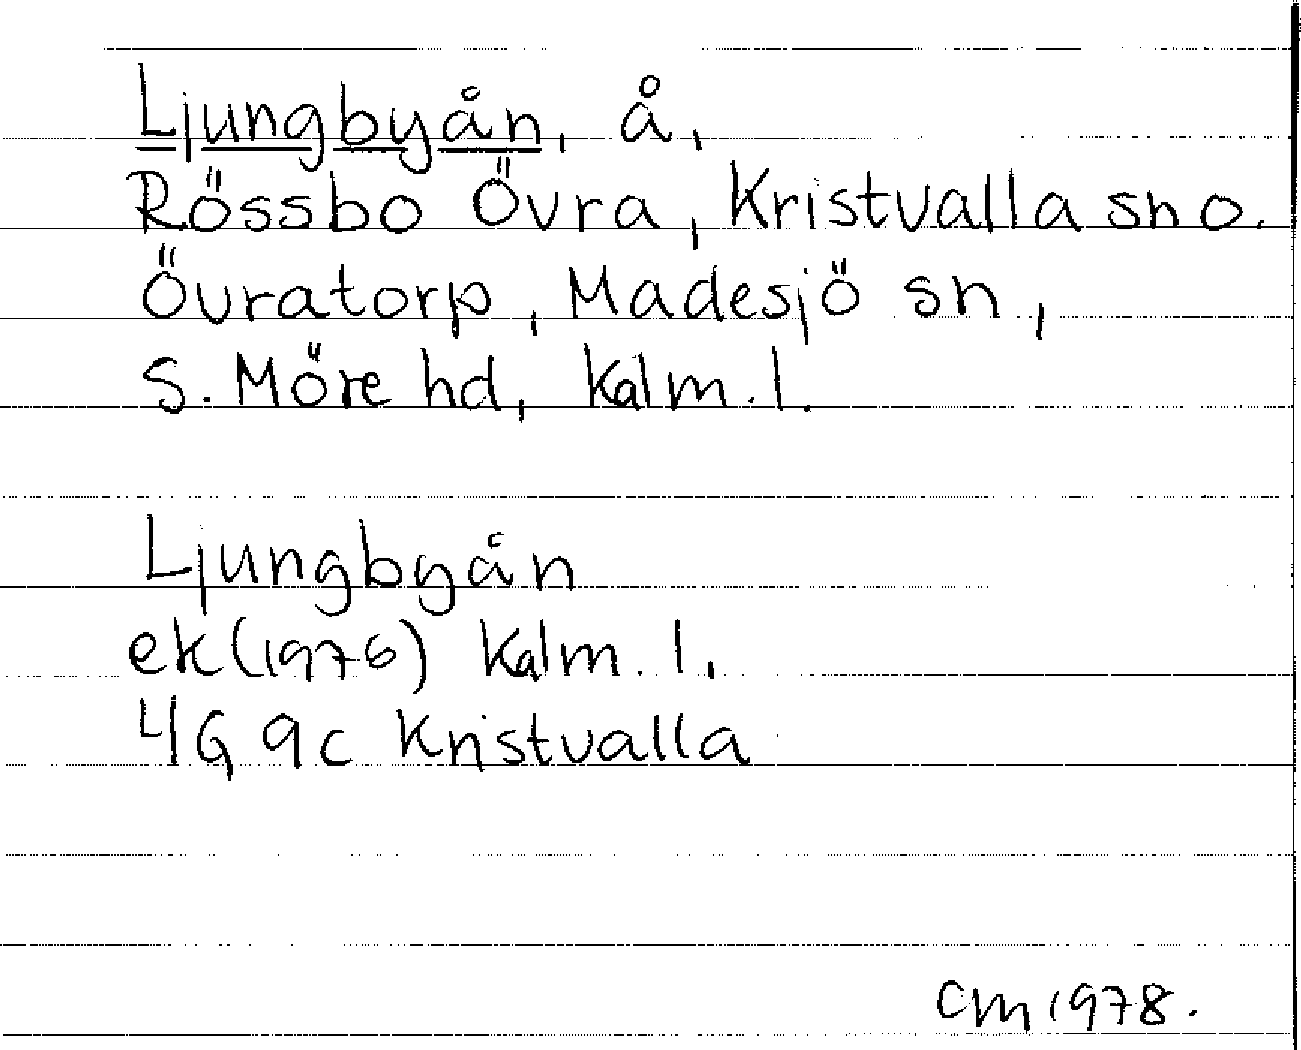 Ljungbyån, å,
Rössbo Övra, Kristvalla sn o.
Övratorp, Madesjö sn,
S. Möre hd, Kalm. l.
Ljungbyån
ek (1976) Kalm. l.
4G 9c Kristvalla
CM 1978.